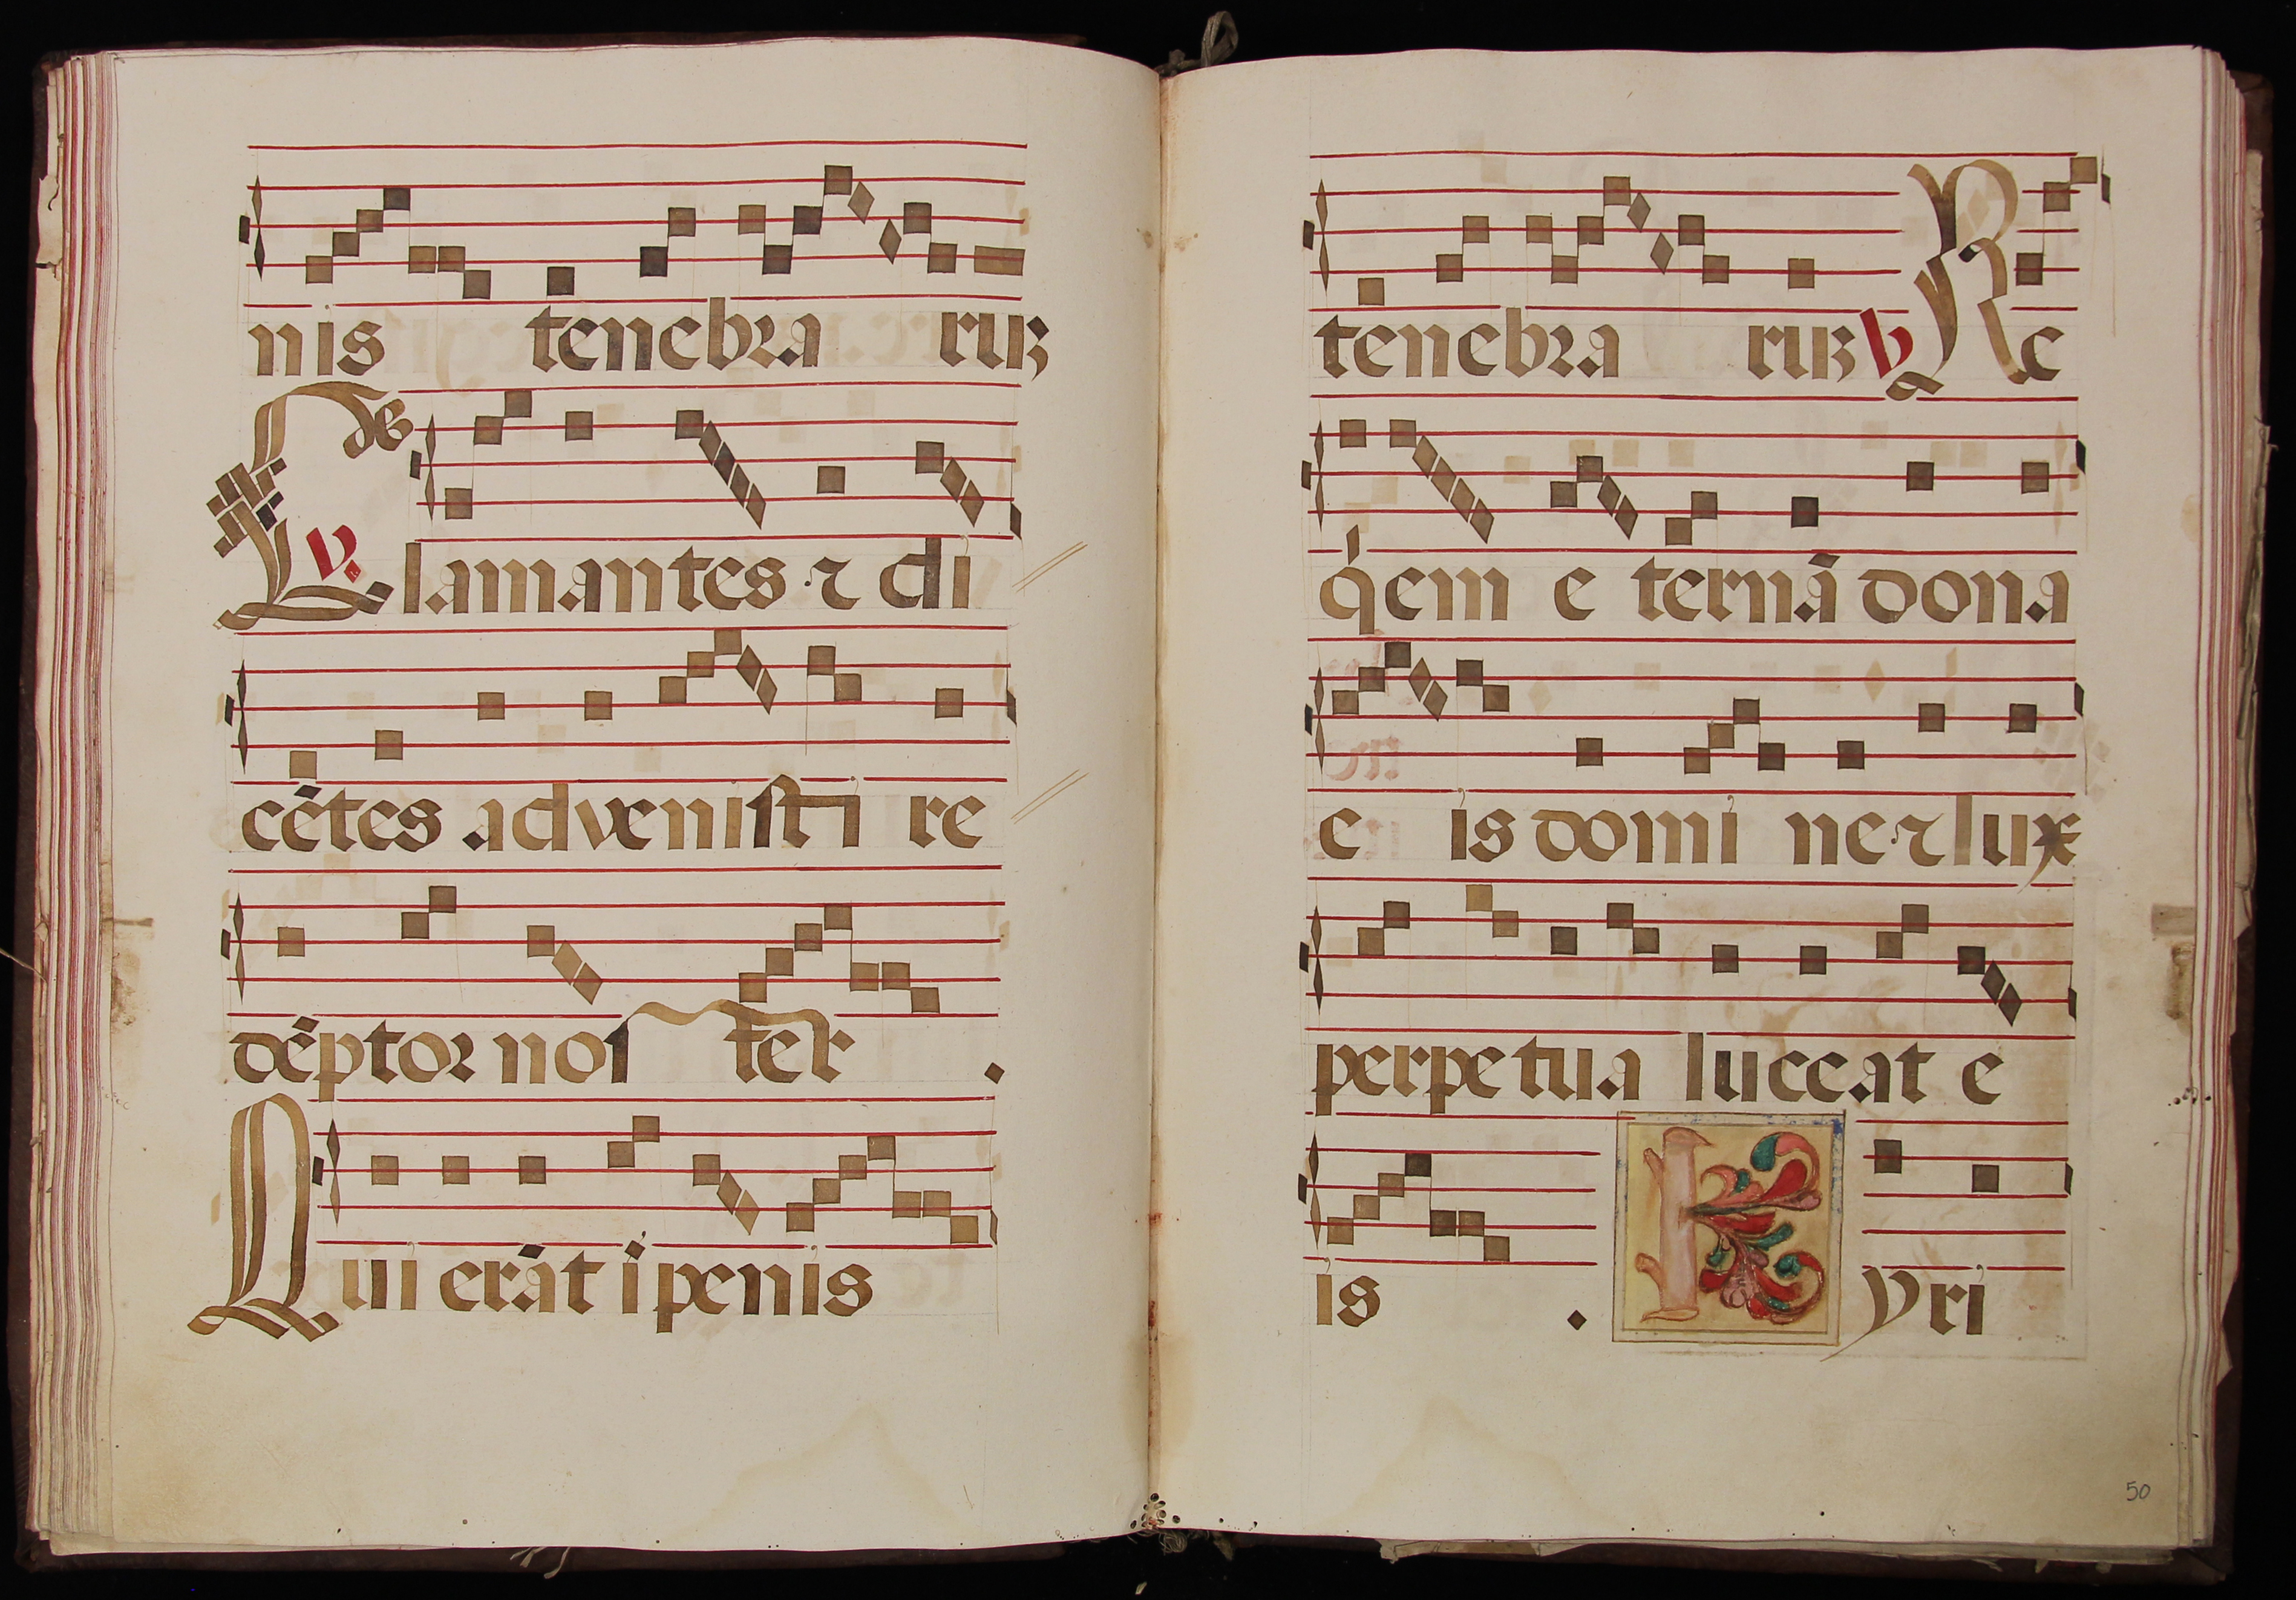 nis tenebra ruꝫ
V. Clamantes ⁊ di
cẽtes advenisti re
dẽptor noſ ter .
Qui erãt ĩ penis
tenebra ruꝫ V Re
q̇em e ternã dona
e is domi ne ⁊ lux
perpe tua luceat e
is . Kyri
50